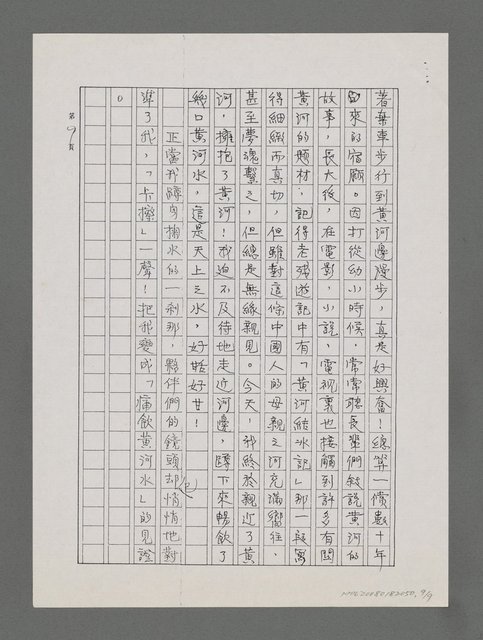 著棄車步行到黃河邊漫步，真是好興奮！總算一償數十年
來的宿願。因打從幼小時候，常常聽長輩們敘說黃河的
故事，長大後，在電影，小說，電視裏也接觸到許多有關
黃河的題材，記得老殘遊記中有「黃河結冰記」那一段寫
得細緻而真切，但雖對這條中國人的母親之河充滿嚮往，
甚至夢魂繫之，但總是無緣親見。今天，我終於親近了黃
河，擁抱了黃河！我迫不及待地走近河邊，蹲下來暢飲了
幾口黃河水，這是天上之水，好甜好甘！
正當我蹲身掬水的一剎那，夥伴們的鏡頭却悄悄地對
準了我，「卡擦」一聲！把我變成「痛飲黃河水」的見證
。
第9頁
NMTL20080182050, 9/9